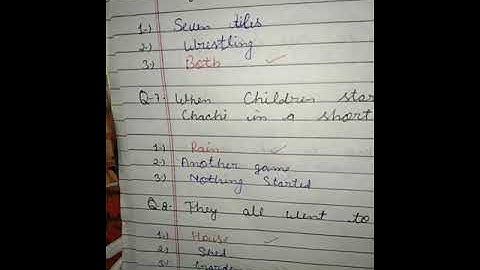 1.) Seven tiles
2.) Wrestling
3.) Both ✓
Q-7- When Children star
Chachi in a short
1.) Rain ✓
2.) Another game
3.) Nothing Started
Q 8- They all went to
1.) House ✓
2.) Shed
3.) Garden